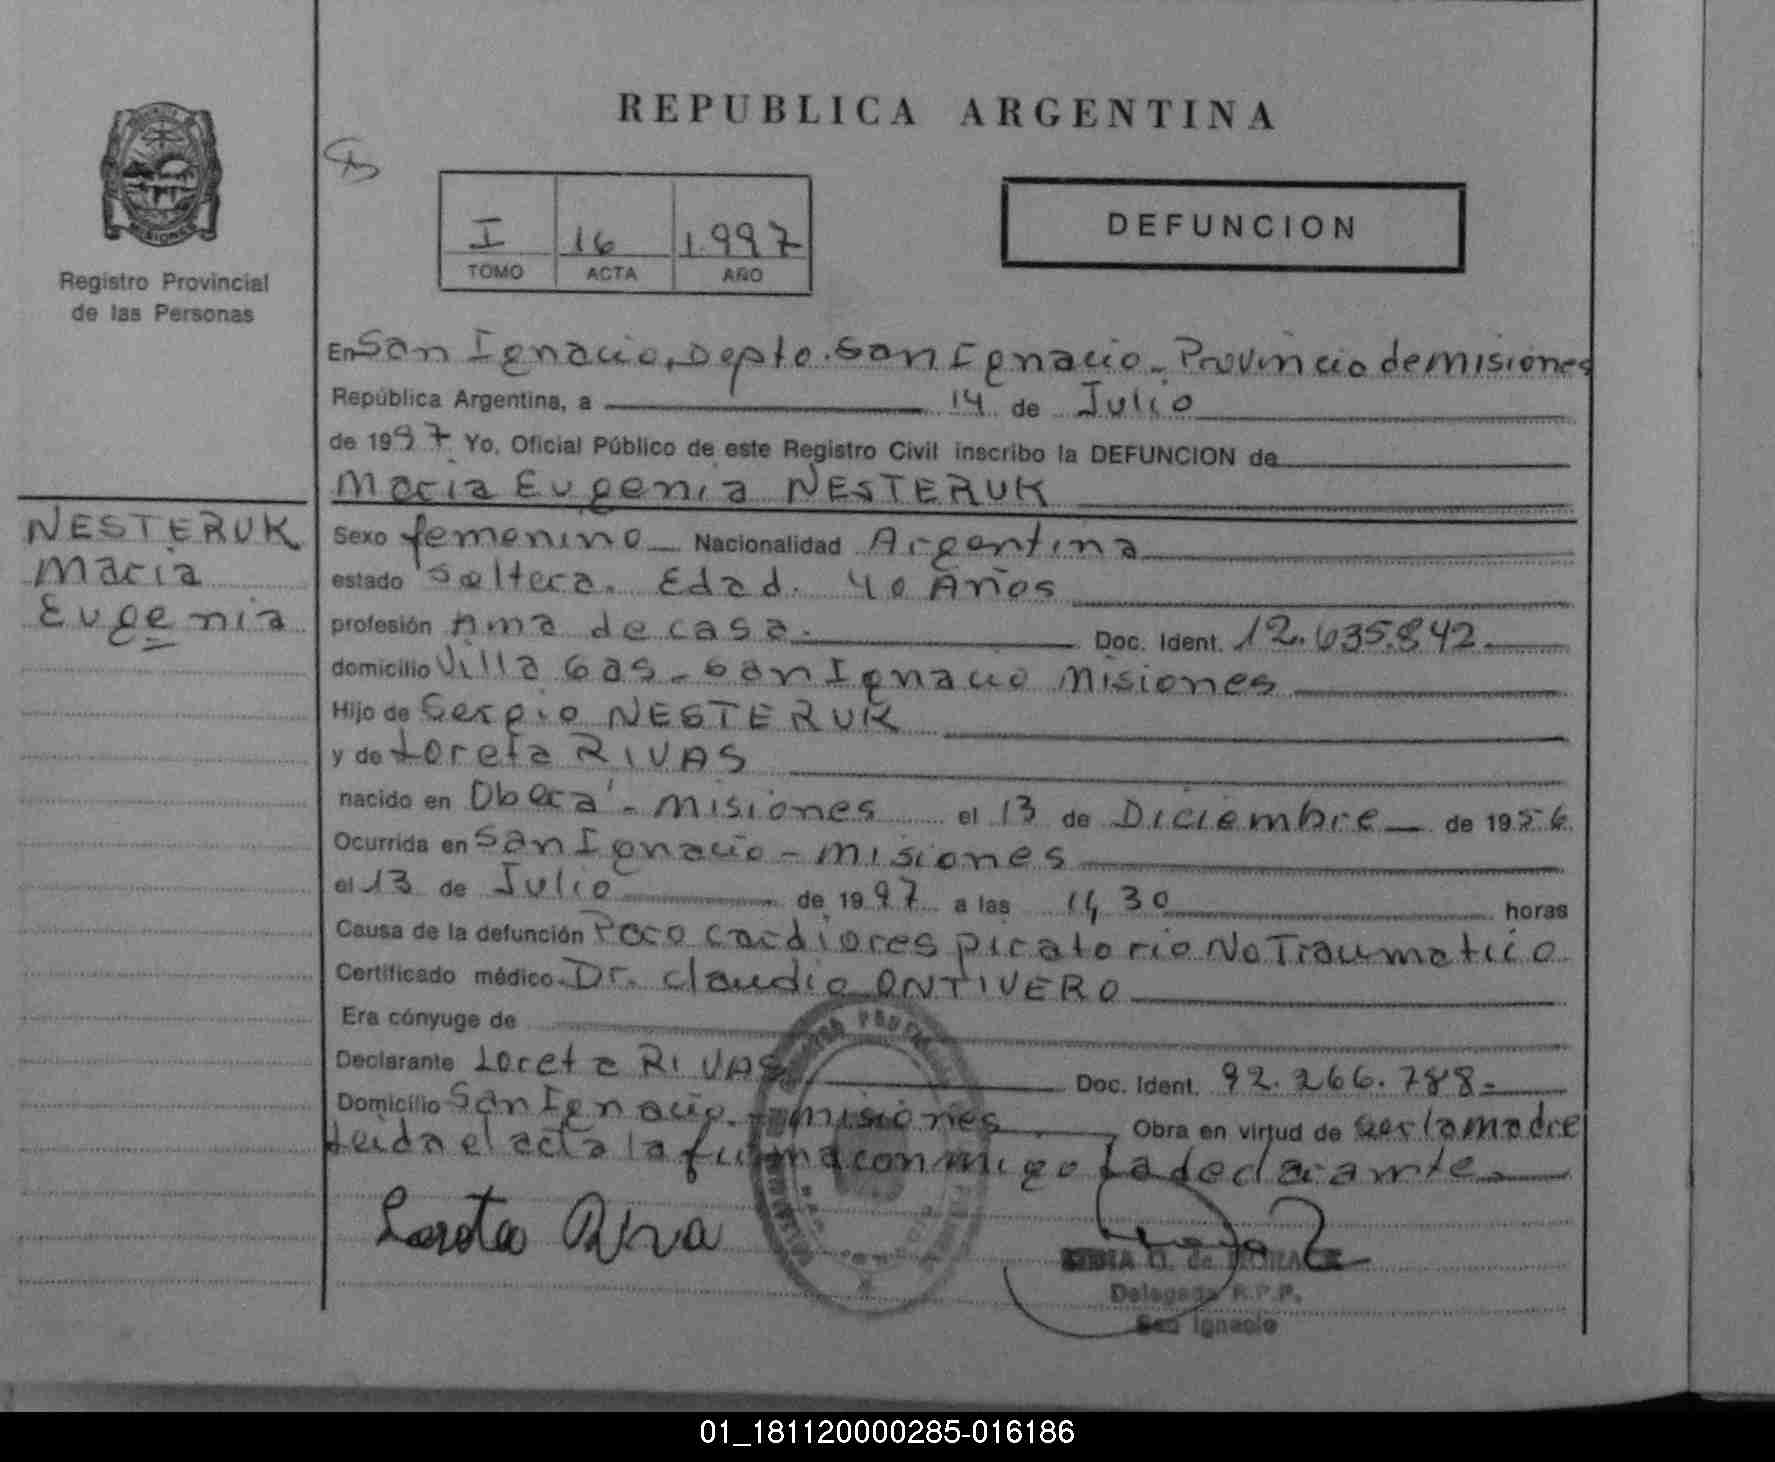 REPUBLICA ARGENTINA
MISIONES
Registro Provincial
de las Personas
I 16 1.997
TOMO ACTA AÑO
DEFUNCION
En San Ignacio, Depto. San Ignacio - Provincia de misiones
República Argentina, a 14 de Julio
de 1997 Yo, Oficial Público de este Registro Civil inscribo la DEFUNCION de
Maria Eugenia NESTERUK
NESTERUK
Maria
Eugenia
Sexo femenino Nacionalidad Argentina
estado Soltera. Edad. 40 Años
profesión Ama de casa. Doc. Ident. 12.635.842.
domicilio Villa Gas - San Ignacio Misiones
Hijo de Sergio NESTERUK
y de Loreta RIVAS
nacido en Oberá - misiones el 13 de Diciembre de 1956
Ocurrida en San Ignacio - misiones
el 13 de Julio de 1997 a las 14,30 horas
Causa de la defunción Paro cardiorespiratorio No Traumatico
Certificado médico Dr. Claudio ONTIVERO
Era cónyuge de
Declarante Loreta RIVAS Doc. Ident. 92.266.788-
Domicilio San Ignacio - misiones Obra en virtud de ser la madre
Leida el acta la firma conmigo La declarante
Loreta Riva
de
Delegada R.P.P.
San Ignacio
01_181120000285-016186